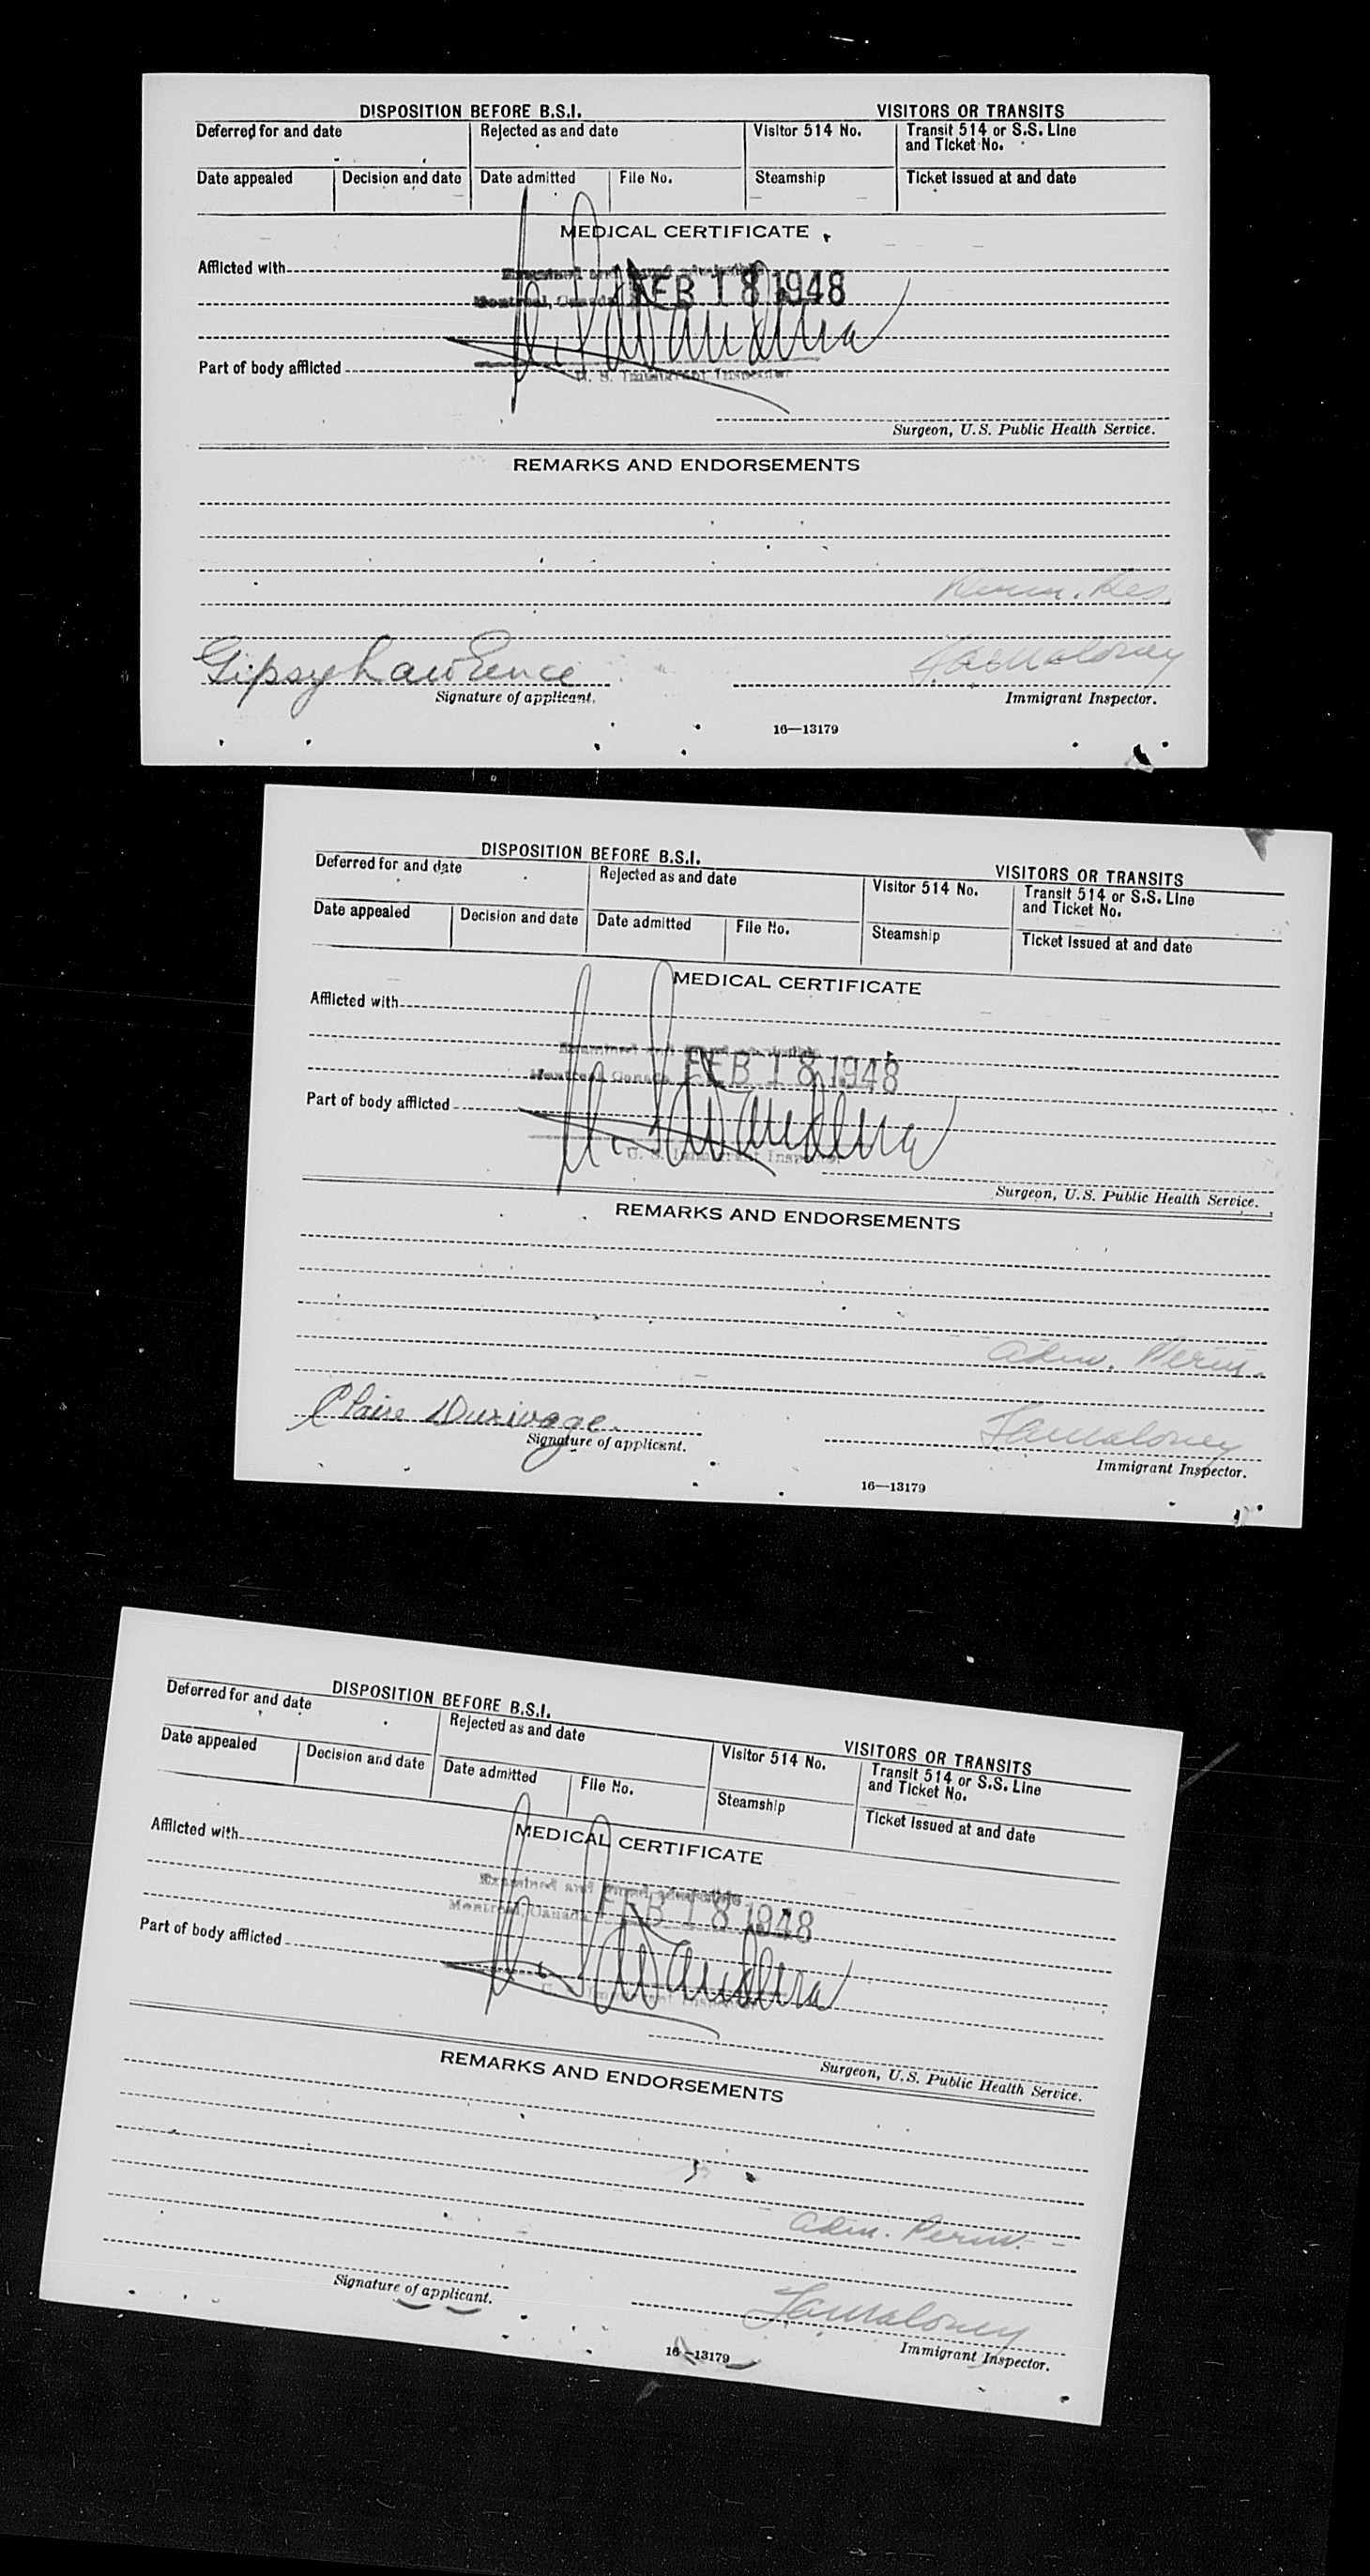 DISPOSITION BEFORE B.S.I. VISITORS OR TRANSITS
Deferred for and date Rejected as and date Visitor 514 No. Transit 514 or S.S. Line and Ticket No.
Date appealed Decision and date Date admitted File No. Steamship Ticket issued at and date
MEDICAL CERTIFICATE
Afflicted with
Examined and found admissible
Montreal, Canada FEB 18 1948
Part of body afflicted
U. S. Immigrant Inspector
Surgeon, U.S. Public Health Service.
REMARKS AND ENDORSEMENTS
Perm. Res.
Gipsy Lawrence Jas Maloney
Signature of applicant. Immigrant Inspector.
16—13179
DISPOSITION BEFORE B.S.I. VISITORS OR TRANSITS
Deferred for and date Rejected as and date Visitor 514 No. Transit 514 or S.S. Line and Ticket No.
Date appealed Decision and date Date admitted File No. Steamship Ticket issued at and date
MEDICAL CERTIFICATE
Afflicted with
Examined and found admissible
Montreal Canada FEB 18 1948
Part of body afflicted
U. S. Immigrant Inspector
Surgeon, U.S. Public Health Service.
REMARKS AND ENDORSEMENTS
Adm. Perm.
Claire Durivage. Jas Maloney
Signature of applicant. Immigrant Inspector.
16—13179
DISPOSITION BEFORE B.S.I. VISITORS OR TRANSITS
Deferred for and date Rejected as and date Visitor 514 No. Transit 514 or S.S. Line and Ticket No.
Date appealed Decision and date Date admitted File No. Steamship Ticket issued at and date
MEDICAL CERTIFICATE
Afflicted with
Examined and found admissible
Montreal Canada FEB 18 1948
Part of body afflicted
U. S. Immigrant Inspector
Surgeon, U.S. Public Health Service.
REMARKS AND ENDORSEMENTS
Adm. Perm.
Jas Maloney
Signature of applicant. Immigrant Inspector.
16—13179